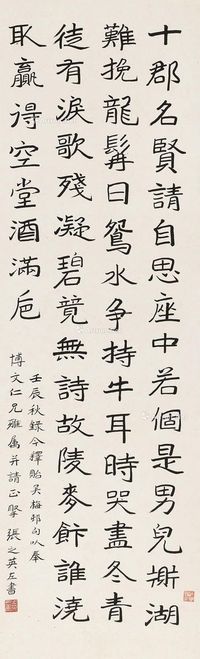 十郡名賢請自思座中若個是男兒鼎湖
難挽龍髯日鴛水争持牛耳時哭盡冬青
徒有淚歌殘凝碧竟無詩故陵麥飰誰澆
取贏得空堂酒滿巵
壬辰秋錄今釋貽吴梅邨句以奉
博文仁兄雅屬并請正擘 張之英左書